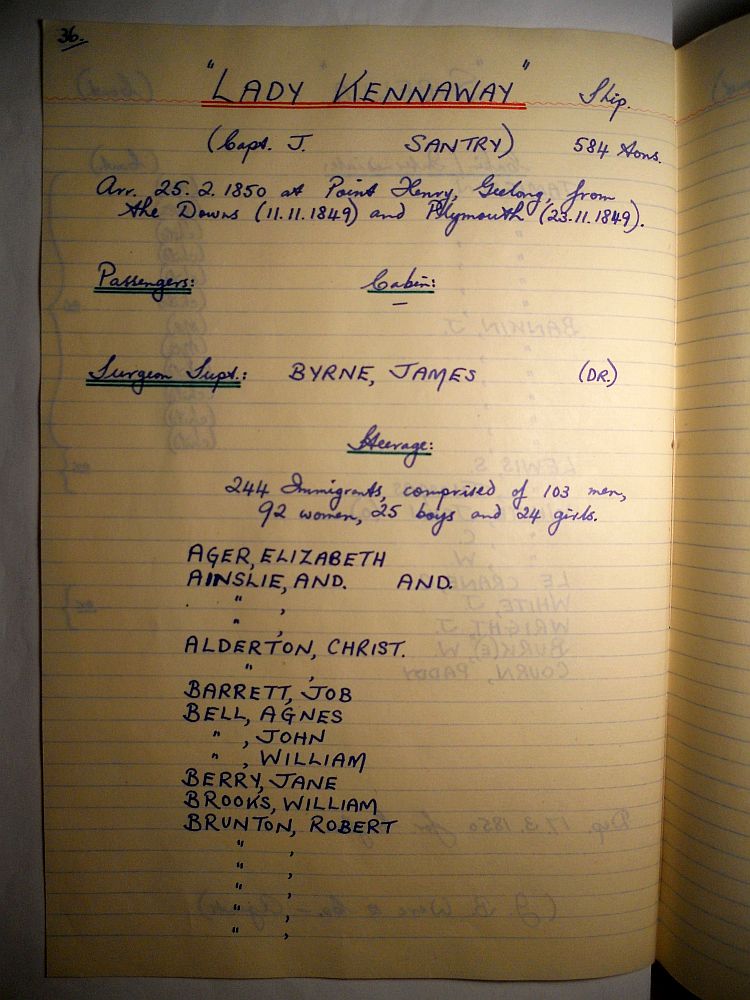 36.
"LADY KENNAWAY" Ship.
(Capt. J. SANTRY) 584 tons.
Arr. 25.2.1850 at Point Henry, Geelong, from
the Downs (11.11.1849) and Plymouth (23.11.1849).
Passengers: Cabin:
—
Surgeon Supt.: BYRNE, JAMES (DR.)
Steerage:
244 Immigrants, comprised of 103 men,
92 women, 25 boys and 24 girls.
AGER, ELIZABETH
AINSLIE, AND. AND.
" ,
" ,
ALDERTON, CHRIST.
" ,
BARRETT, JOB
BELL, AGNES
" , JOHN
" , WILLIAM
BERRY, JANE
BROOKS, WILLIAM
BRUNTON, ROBERT
" ,
" ,
" ,
" ,
" ,